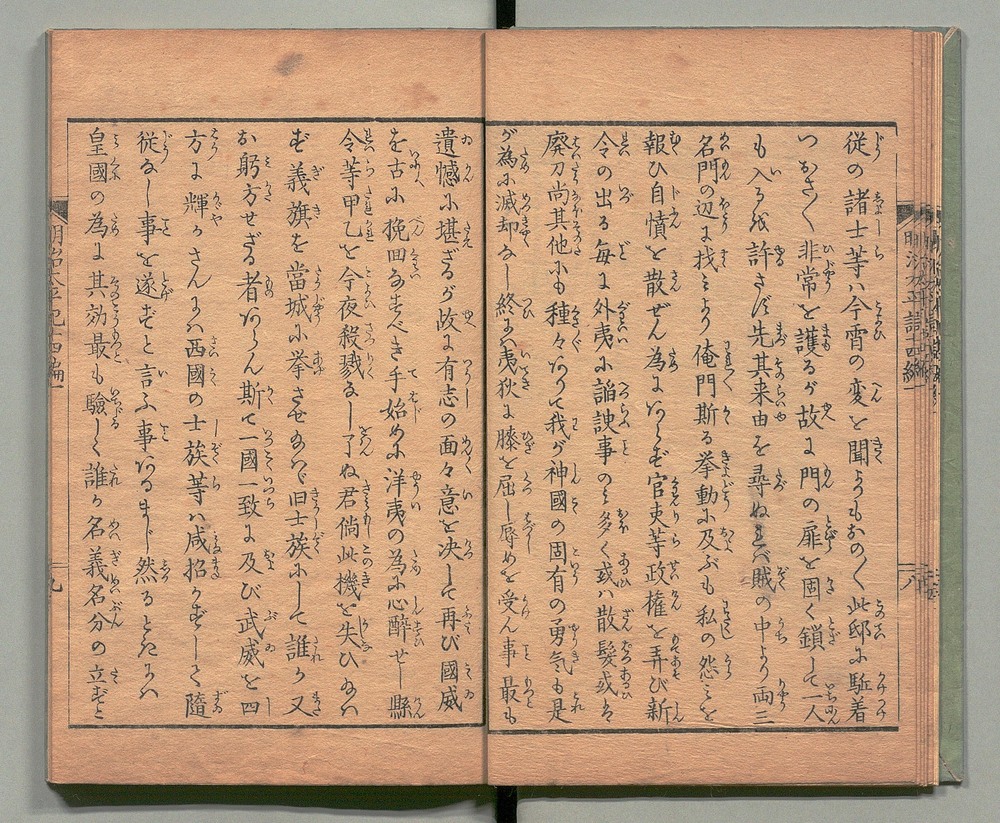 従の諸士等ハ今宵の変を聞よりもおの〳〵此邸に駈着
つおさ〳〵非常を護るが故に門の扉を固く鎖して一人
も入るを許さず先其来由を尋ぬれバ賊の中より両三
名門の辺に找みより俺門斯る挙動に及ぶも私の怨みを
報ひ自憤を散ぜん為にハあらず官吏等政権を弄び新
令の出る毎に外夷に諂諛事のミ多く或ハ散髪或は
廃刀尚其他にも種々ありて我が神國の固有の勇気も是
が為に滅却なし終にハ夷狄に膝を屈し辱めを受ん事最も
遺憾に堪ざるが故に有志の面々意を决して再び國威
を古に挽回なすべき手始めに洋夷の為に心酔せし縣
令等甲乙を今夜殺戮なし了ぬ君倘此機を失ひ給ハ
ず義旗を當城に挙させ給はゞ旧士族にして誰か又
お躬方せざる者あらん斯て一國一致に及び武威を四
方に輝かさんにハ西國の士族等ハ咸招かずして隨
従なし事を遂ずと言ふ事あるまじ然るときにハ
皇國の為に其効最も驗く誰か名義名分の立ずと
明治太平記十四編
八
九